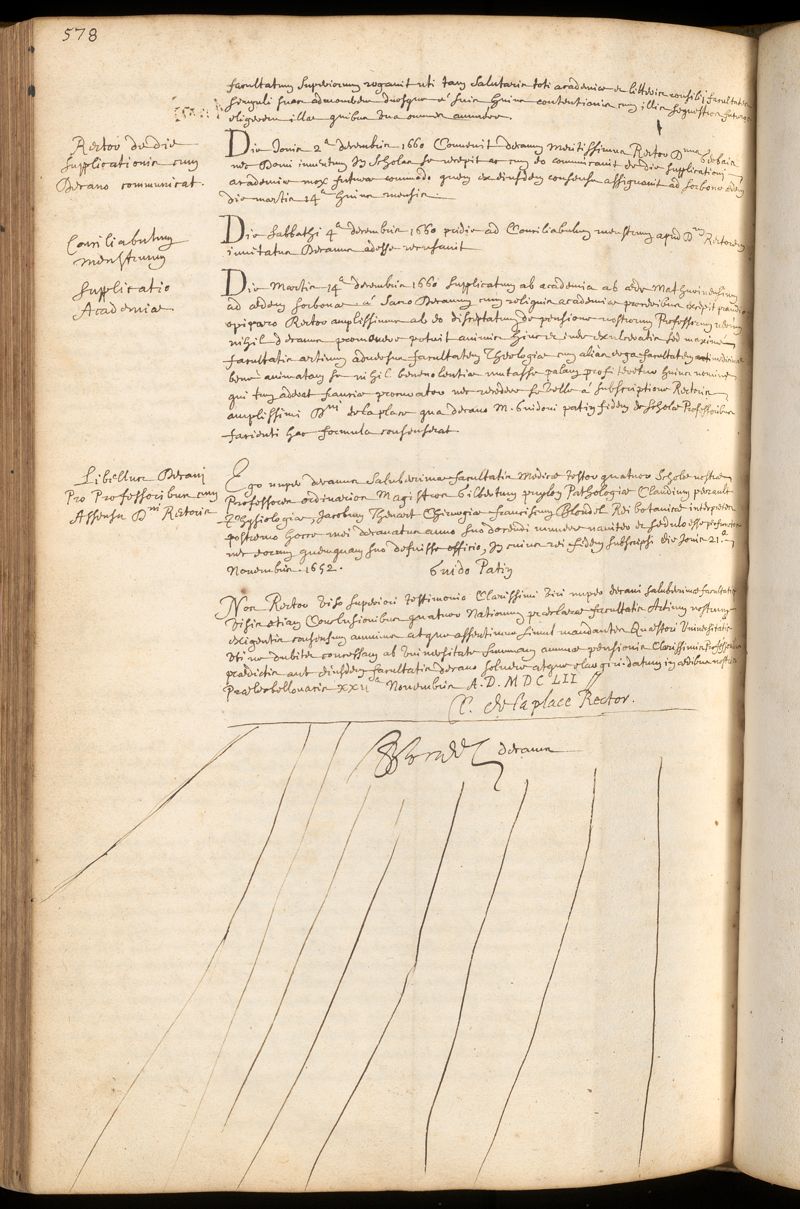 578
facultatum superiorum rogavit uti tam salutaria toti academiae et litteris consilij facultates
singuli suae admonerem duosque è suis huius contentionis cum illis sequestros futuros
eligerem illae quibus sua omnes
Rector de die
supplicationis cum
Decano communicat.
Die Jovis 2ª decembris 1660 Convenit decanum meritissimus Rector Dnus
nec Domi inventum in Scholas se recepit ac cum eo communicavit de die supplicationi
academiae mox futurae commodo quem ex eiusdem consensu assignavit ad sorbonae aedem
die martis 14ª huius mensis.
Consiliabulum
menstruum
Die Sabbathi 4ª decembris 1660 pridie ad Consiliabulum menstruum apud Dnum Rectorem
invitatus Decanus adesse recusavit
Supplicatio
Academiae
Die Martis 14ª decembris 1660 supplicatum ab academia ab aede Mathurinensium
ad aedem sorbonae à sacro Decanum cum reliquis academiae proceribus excepit prandio
opiparo Rector amplissimus ab eo disceptatum de pensione nostrorum Professorum verum
nihil decanus promovere potuit animis hinc et inde exulceratis sed maxime
facultatis artium adversus facultatem Theologiae cum alias erga facultatem medicinae
bene animatam se nihil benevolentiae mutasse palam profiteretur huius nomine
qui tum aderat Franciae procurator nec recedere se velle à subscriptione Rectoris
amplissimi Dni de la place qua decano M. Guidoni patin fidem de scholae Professoribus
facienti hac formula consenserat.
Libellus Decani
Pro Professoribus cum
Assensu Dni Rectoris
Ego nuper decanus saluberrimae facultatis Medicae testor quatuor Scholae nostrae
Professores ordinarios Magistros Gilbertum puylon Pathologiae Claudium perrault
Physiologiae, Jacobum Thevart Chirurgiae franciscum Blondel Rei botanicae interpretem
postremo hocce mei decanatus anno suo docendi munere naviter et sedulo esse perfunctos
nec eorum quemquam suo defuisse officio, In cuius rei fidem subscripsi die Jovis 21ª
Novembris 1652.
Guido Patin
Nos Rector viso superiori testimonio Clarissimi viri nuper decani saluberrimae facultatis
visis etiam Conclusionibus quatuor Nationum praeclarae facultatis Artium nostrum
exigentis consensum annuimus atque assentimur simul mandantes Quaestori Universitatis
uti ne dubitet concessam ab Universitate summam annuae pensionis Clarissimis professoribus
praedictis aut eiusdem facultatis decano solvere atque elargiri datum in aedibus nostris
Praeleobellovacis XXIIª Novembris A.D. MDCLII
C. de la place Rector.
Blondel decanus